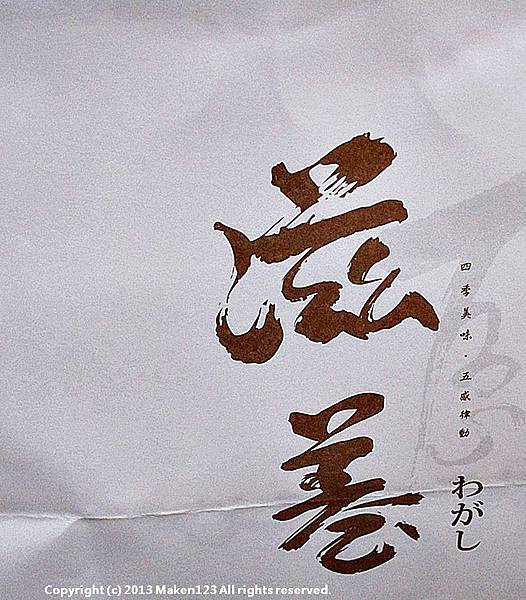 滋養
四季美味・五感律動
わがし
Copyright (c) 2013 Maken123 All rights reserved.